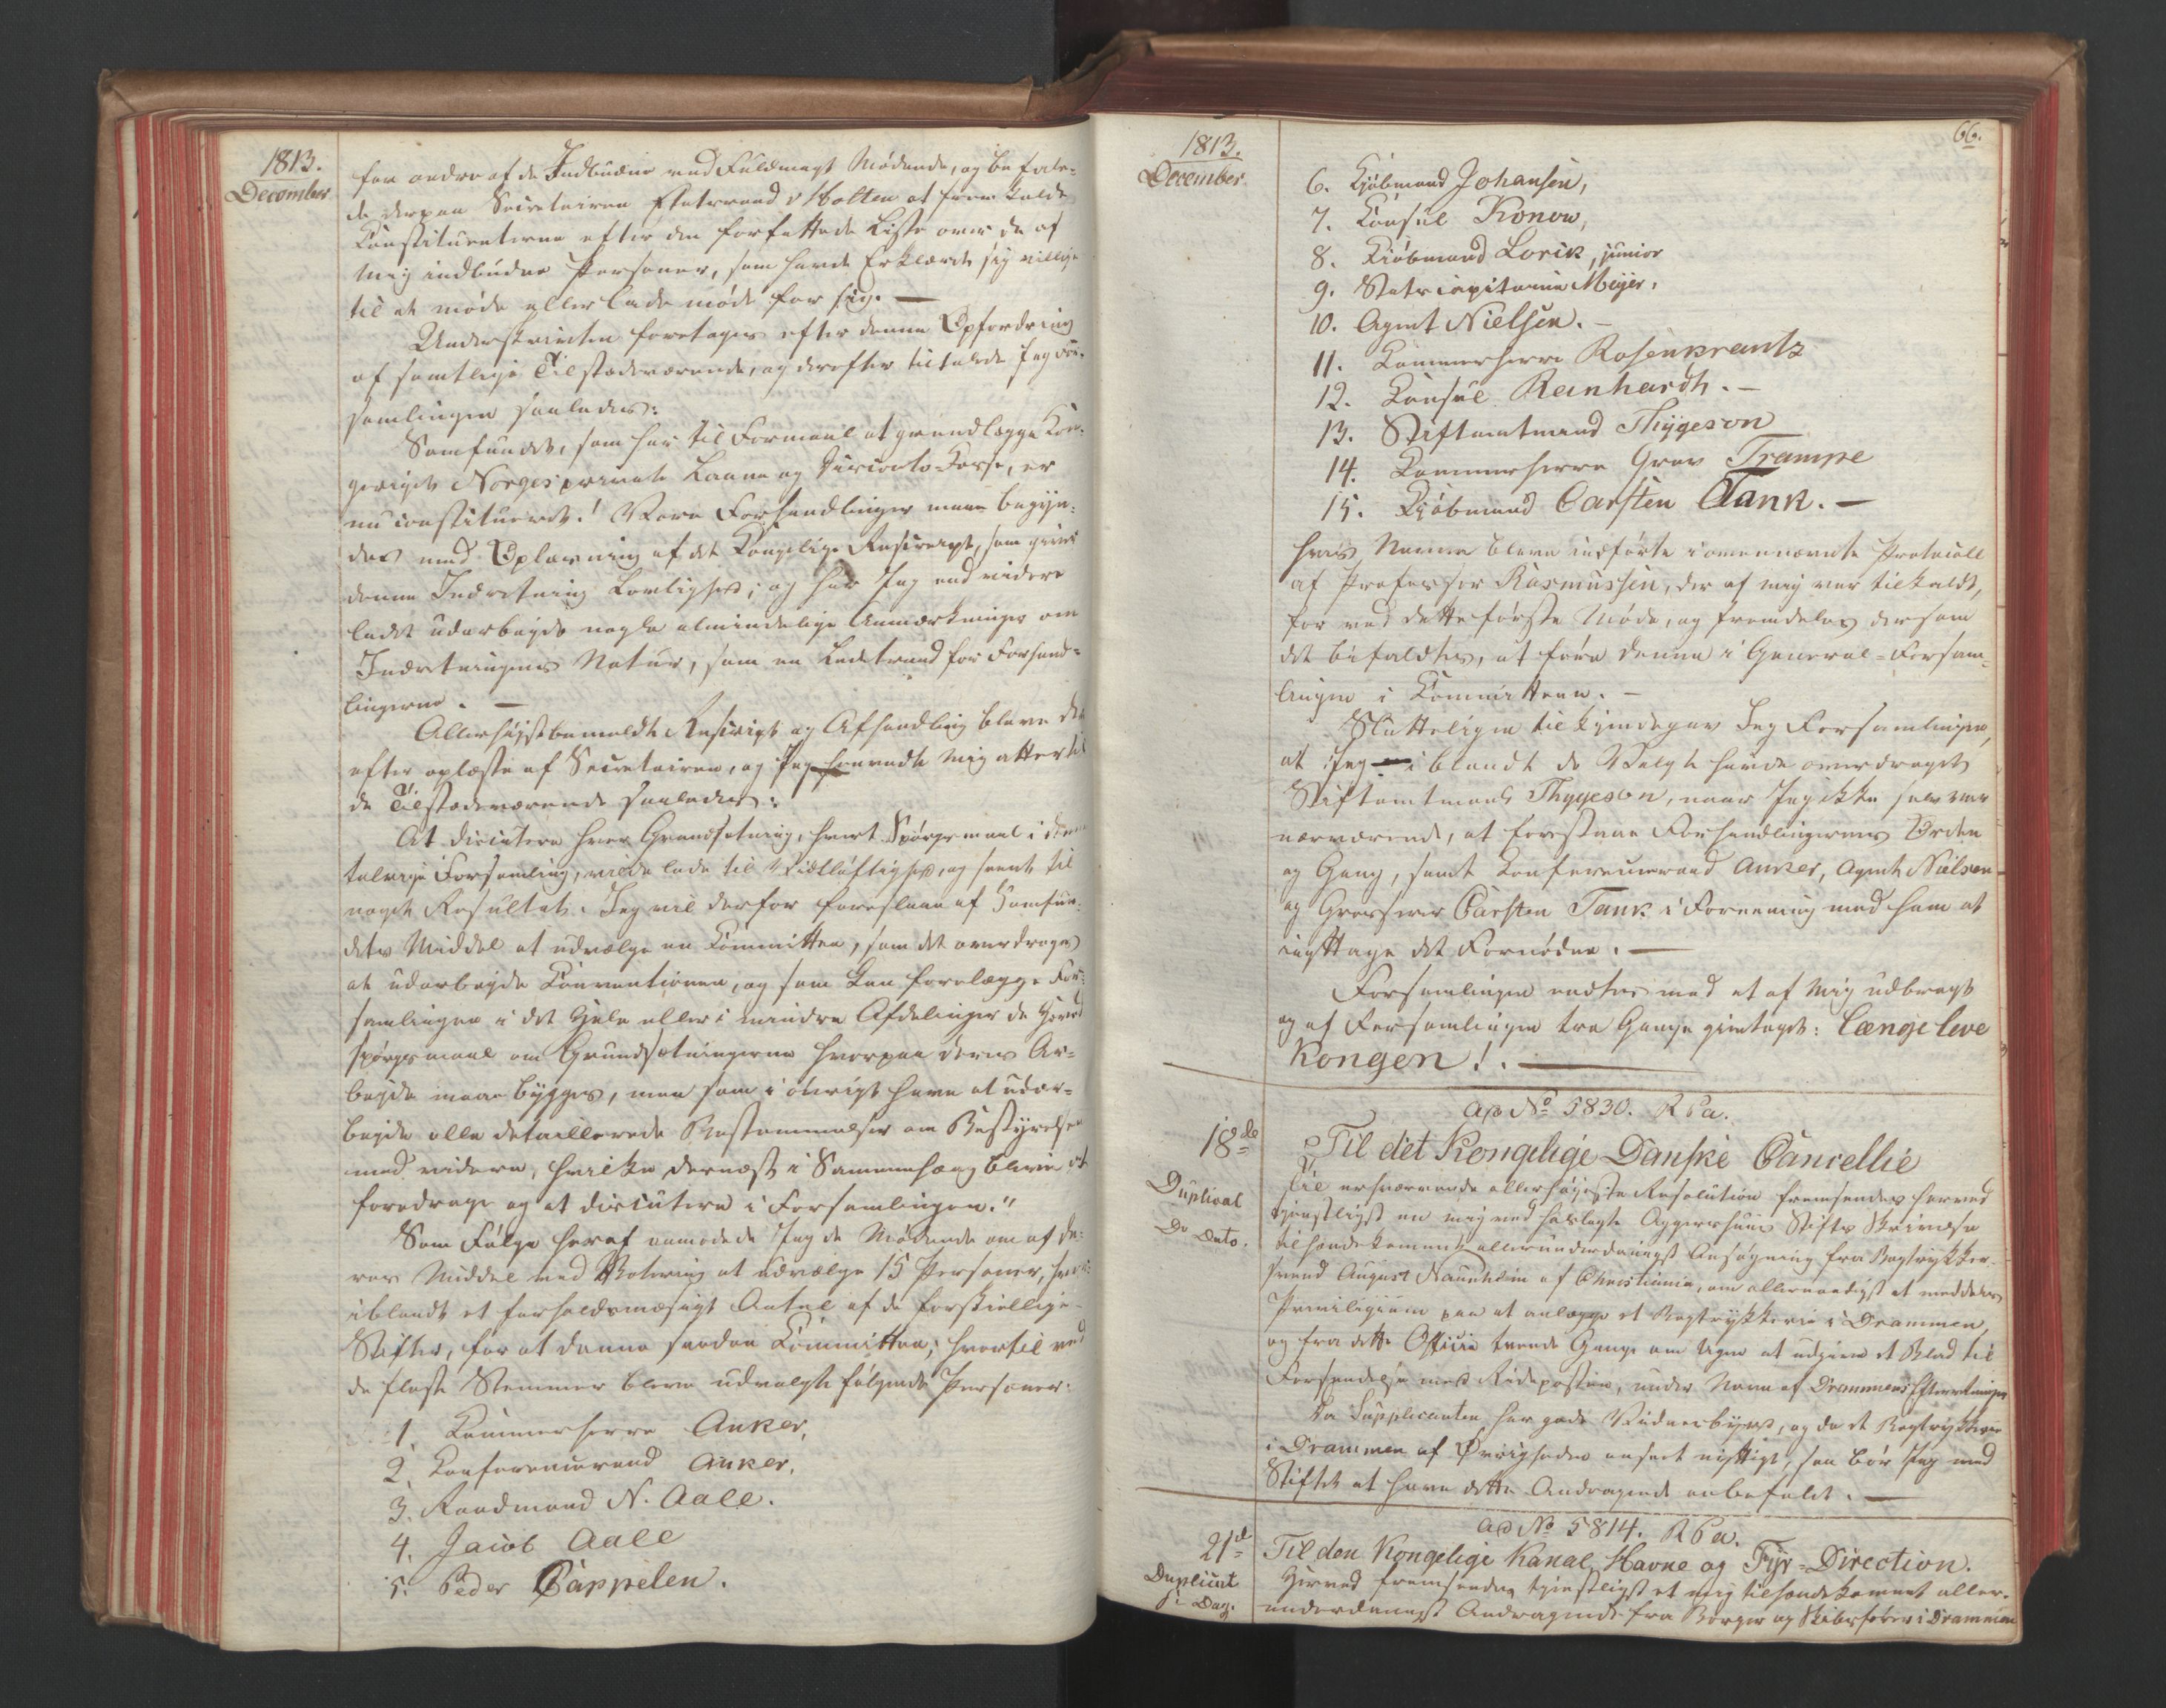 1813.
December
for andre af de Indbudne med Fuldmagt Mødende, og befale-
de derpaa Secretairen Etatsraad v Holten at fremkalde
Constituenterne efter den forfattede Liste over de af
mig indbudne Personer, som havde Erklæret sig villige
til at møde eller lade møde for sig. —
Underskrivten foretages efter denne Opfordring
af samtlige Tilstædeværende, og derefter tiltalede Jeg For-
samlingen saaledes:
Samfundet, som har til Formaal at grundlægge Kon-
geriget Norges private Laane og Disconto-Casse, er
nu constitueret! Vore Forhandlinger maae begyn-
des med Oplæsning af det Kongelige Rescript, som giver
denne Indretning Lovlighed; og har Jeg end videre
ladet udarbejde nogle almindelige Anmærkninger om
Indretningens Natur, som en Ledetraad for Forhand-
lingerne. —
Allerhøjstbemeldte Rescript og Afhandling bleve der-
efter oplæste af Secretairen, og Jeg henvendte mig atter til
de Tilstædeværende saaledes:
At discutere hver Grundsætning, hvert Spørgsmaal i denne
talrige Forsamling, vilde lede til Vidtløftighed, og seent til
noget Resultat. Jeg vil derfor foreslaae af Samfun-
dets Middel at udvælge en Committee, som det overdrages
at udarbejde Conventionen, og som kan forelægge For-
samlingen i det Hele eller i mindre Afdelinger de Hoved
spørgsmaal om Grundsætningerne hvorpaa deres Ar-
bejde maae bygges, men som i øvrigt have at udar-
bejde alle detaillerede Bestemmelser om Bestyrelsen
med videre, hvilke dernæst i Sammenhæng blive at
foredrage og at discutere i Forsamlingen."
Som Følge heraf anmodede Jeg de Mødende om af de-
res Middel ved Votering at udvælge 15 Personer, hvor-
iblandt et forholdsmæssigt Antal af de forskiellige
Stifter, for at danne saadan Committee, hvortil ved
de fleste Stemmer bleve udvalgte følgende Personer:
1. Kammerherre Anker,
2. Conferenceraad Anker,
3. Raadmand N. Aall.
4. Jacob Aall
5. Peder Cappelen.
66.
1813.
December
6. Kjøbmand Johansen,
7. Consul Konow,
8. Kiøbmand Lorck, junior
9. Stadscapitaine Meyer,
10. Agent Nielsen. —
11. Kammerherre Rosenkrantz
12. Consul Reinhardt. —
13. Stiftamtmand Thygeson
14. Kammerherre Grev Trampe
15. Kjøbmand Carsten Tank. —
hvis Navne bleve indførte i ovennævnte Protocoll
af Professor Rasmussen, der af mig var tilkaldt,
for ved dette første Møde, og fremdeles dersom
det bifaldtes, at føre denne i General-Forsam-
lingen i Committeen. —
Slutteligen tilkjendegav Jeg Forsamlingen,
at Jeg — iblandt de Valgte havde overdraget
Stiftamtmand Thygeson, naar Jeg ikke selv var
nærværende, at forestaae Forhandlingernes Orden
og Gang, samt Conferenceraad Anker, Agent Nielsen
og Grosserer Carsten Tank i Forening med ham at
iagttage det Fornødne. —
Forsamlingen endtes med et af Mig udbragt
og af Forsamlingen tre Gange gientaget: Længe leve
Kongen! . —
ad No 5830. R Pa.
18de
Til det Kongelige Danske Cancellie
Duplicat
Do Dato.
Til erhværvende allerhøjeste Resolution fremsendes herved
tjenstligst en mig ved hoslagte Aggershuus Stifts Skrivelse
tilhændekommet allerunderdanigst Ansøgning fra Bogtrykker-
svend August Naumheim af Christiania, om allernaadigst at meddeles
Privilegium paa at anlægge et Bogtrykkerie i Drammen,
og fra dette Officin tvende Gange om Ugen at udgive et Blad til
Forsendelse med Rideposten, under Navn af Drammens Efterretninger
Da Supplicanten har gode Vidnesbyrd, og da et Bogtrykkerie
i Drammen af Øvrigheden ansees nyttigt, saa bør Jeg med
Stiftet at have dette Andragende anbefalet. —
ad No 5814. R Pa.
21de
Til den Kongelige Kanal, Havne og Fyr-Direction.
Duplicat
s. Dag.
Herved fremsendes tjenstligst et mig tilhændekommet aller-
underdanigst Andragende fra Borger og Skibsfører i Drammen